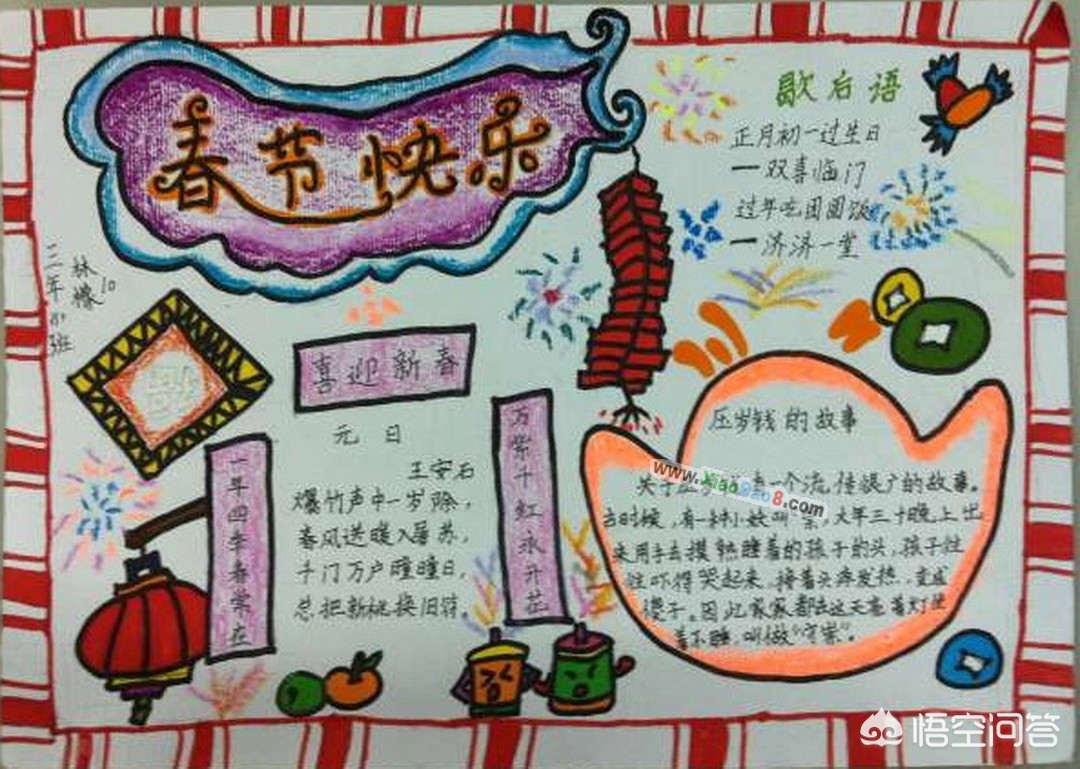 春节快乐
歇后语
正月初一过生日
一双喜临门
过年吃团圆饭
一济济一堂
三年
班
林
10
喜迎新春
一年四季春常在
万紫千红永开花
元日
王安石
爆竹声中一岁除,
春风送暖入屠苏,
千门万户瞳瞳日,
总把新桃换旧符。
压岁钱的故事
关于 一个流传很广的故事。
古时候,有一种小妖叫"祟",大年三十晚上出
来用手去摸熟睡着的孩子的头,孩子往
往吓得哭起来,接着头疼发热,变成
傻子。因此家家都在这天亮着灯坐
着不睡,叫做"守祟"。
www.XiaoBao8.com
悟空问答